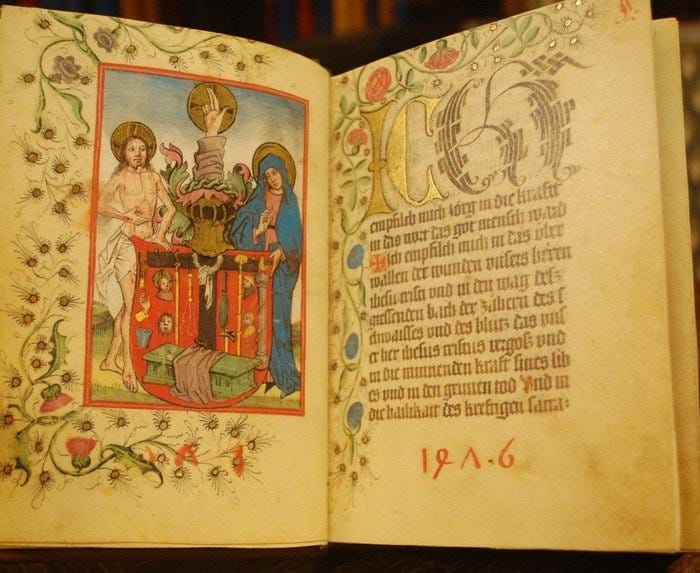 ICH
empfilch mich zörg in die krafft
in das wort das got mensch ward
Ich empfilch mich in das über
wallen der wunden unsers heren
ihesu cristi vnd in den wag detz
giessenden bach der zähern des s
chwaisses vnd des blutz das vns
er her ihesus cristus vergosz vnd
in die minnenden kraft sines lib
es vnd in den grimen tod Vnd in
die hailikait des kreftigen sacra-
147.6